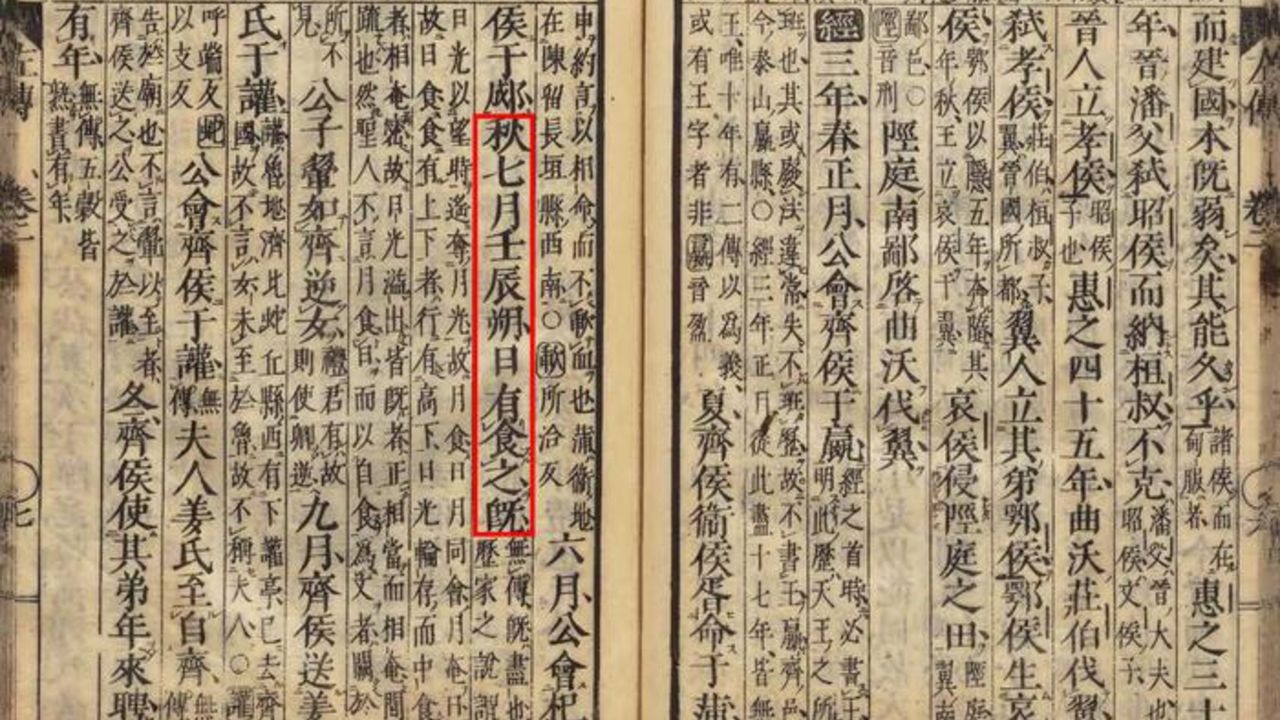 而建國本既弱矣其能久乎諸侯而在甸服者惠之三十
年晉潘父弑昭侯而納桓叔不克潘父晉大夫也昭侯文侯子
晉人立孝侯昭侯子也惠之四十五年曲沃莊伯伐翼
弑孝侯莊伯桓叔子翼晉國所都翼人立其弟鄂侯鄂侯生哀
侯鄂侯以隱五年奔隨其年秋王立哀侯于翼哀侯侵陘庭之田陘庭翼南
鄙邑○陘音刑陘庭南鄙啓曲沃伐翼
經三年春正月公會齊侯于嬴經之首時必書王明此歷天王之所
班也其或廢法違常失不班歷故不書王嬴齊邑今泰山嬴縣○經三年正月從此盡十七年皆無
王唯十年有二傳以為義或有王字者非嬴音盈夏齊侯衛侯胥命于蒲
申約言以相命而不歃血也蒲衛地在陳留長垣縣西南○歃所洽反六月公會杞
侯于郕秋七月壬辰朔日有食之既無傳既盡也歷家之說謂
日光以望時遙奪月光故月食日月同會月奄日故日食食有上下者行有高下日光輪存而中食
者相奄密故日光溢出皆既者正相當而相奄間疏也然聖人不言月食日而以自食為文者關於
所不見公子翬如齊逆女禮君有故則使卿逆九月齊侯送姜
氏于讙讙魯地濟北蛇丘縣西有下讙亭已去齊國故不言女未至於魯故不稱夫人○讙
呼端反蛇以支反公會齊侯于讙無傳夫人姜氏至自齊無傳
告於廟也不言翬以至者齊侯送之公受之於讙冬齊侯使其弟年來聘
有年無傳五穀皆熟書有年
左傳 卷二